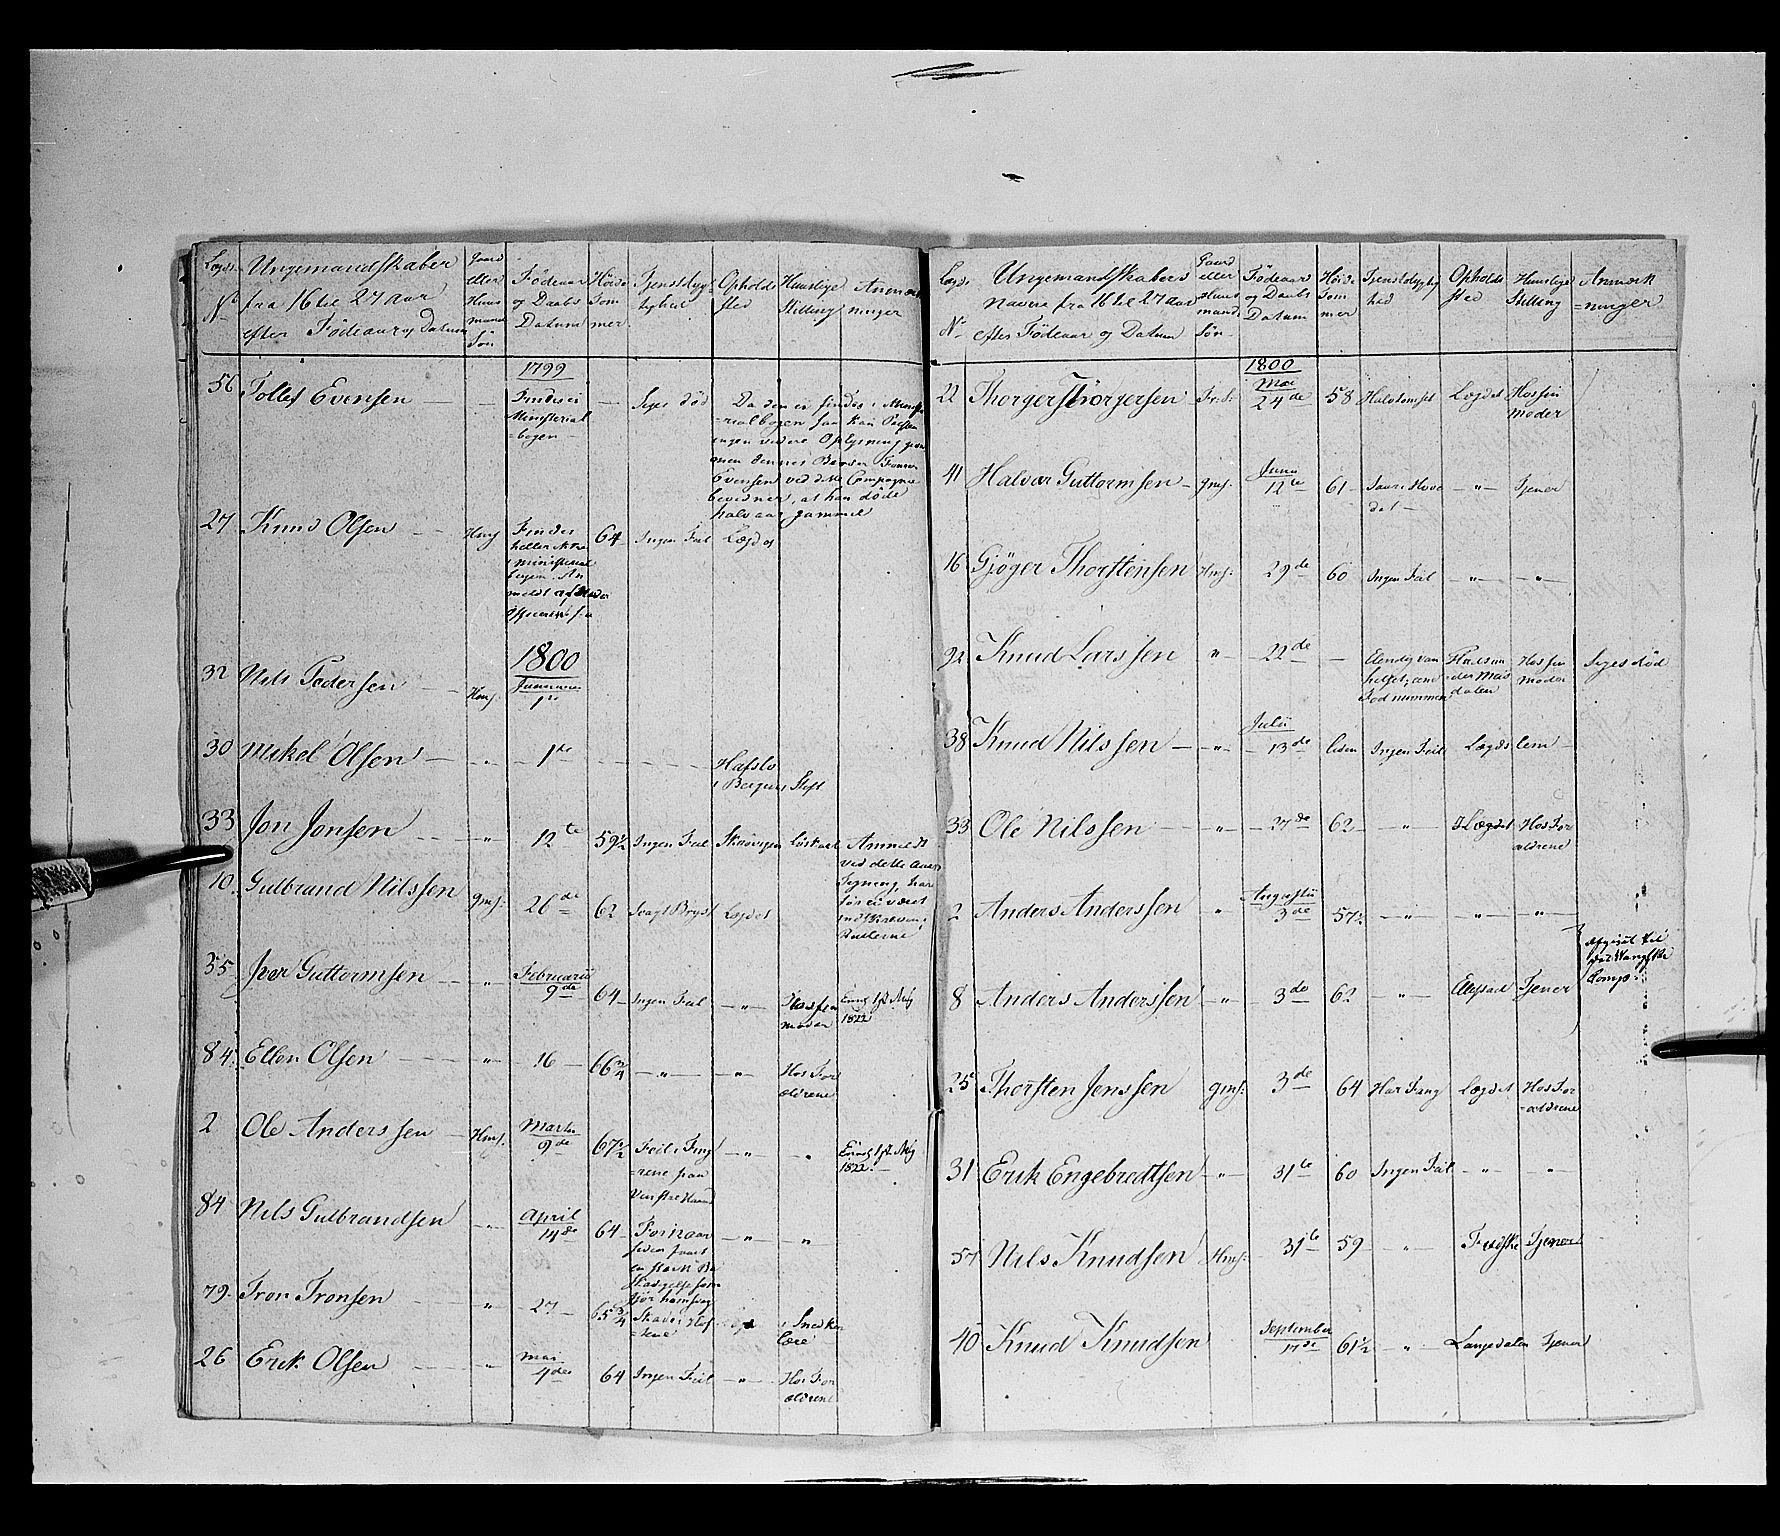 Lægds No
Ungemandskaber fra 16 til 27 aar efter Fødeaar og Datum
Gaard eller Huus mands Søn
Fødeaar og Daabs Datum
Høide Tommer
Tjenstdyg tighed
Opholds Sted
Huuslige Stilling
Anmærk ninger
1799
56 Tollef Evensen — — Findes ei Ministerial =bogen — — Siges død Da den ei findes i Ministe =rialbogen saa kan Præsten ingen videre Oplysning give men dennes Broder Evensen ved dette Compagnie bevidner, at han døde halv aar gammel
27 Knud Olsen — Hmds Findes heller ikke i ministerial bogen. An meldt af 64 Ingen Feil Lægdet
1800
32 Nils Pedersen — Hms. Januarii 1te
30 Mikel Olsen — „ — 1de — Hafslo i Bergens Stift
33 Jon Jonsen — „ 12te 59½ Ingen Feil Skrøvigen Anmeldt ved dette Tegning, har før ei været Rullerne
10. Gulbrand Nilssen gms. 26de 62 Svagt Bryst Lægdet
55 Iver Guttormsen — „ Februarii 9de 64 — Ingen Feil — „ — Hos sin moder 1822
84. Ellen Olsen — „ — 16 — 66¾ — „ — — „ — Hos For ældrene
2 Ole Anderssen — Hms. Martii 9de 67½ Feil i Fing =rene paa Venstre Haand — „ — „ 1822 —
84 Nils Gulbrandsen — „ — April 14de 64 — For aar siden faaet en stærk Be skadigelse som gjør ham svag — „ — „
79. Tron Tronsen „ 27 — 65¾ Skade i Hof =tene i Snedker lære
26 Erik Olsen — „ — Mai 4de 64 Ingen Feil — „ — Hos For ældrene
Lægds No
Ungemandskabers navne fra 16 til 27 aar efter Fødeaar og Datum
Gaard eller Huus mands Søn
Fødeaar og Daabs Datum
Høide Tom mer
Tjenstdygtig hed
Opholds Sted
Huuslige Stilling
Anmærk =ninger
1800
22 Thorger Thorgersen Mai 24de 58 Halv tomset Lægdet Hos sin moder
41 Halvor Guttormsen — gms. Juni 12te 61 — — „ — Tjener
16 Gjøger Thorstensen Hms. 29de 60 Ingen Feil — „ — — „ —
92 Knud Larssen „ — 22de — Elendig van helset, om Fod Hos sin Moder Siges død
38 Knud Nilssen — — „ — Julii — 13de liden Ingen Feil Lægds lem —
33 Ole Nilssen — „ — — 27de 62 — — „ — I Lægdet Hos For ældrene
2 Anders Anderssen „ Augustii 3de 57½ — „ — — „ — — „ —
8 Anders Anderssen — „ — 3de 62 — „ — Tjener Afgivet til det Comp.
25 Thorsten Jenssen gms. 3de 64 Har Fang Lægdet Hos For =ældrene
31 Erik Engebredtsen — „ — 31te 60 Ingen Feil — „ — — „ —
57 Nils Knudsen Hms. 31te 59 „ — Tjener
40 Knud Knudsen September 17de 61½ — „ — Langedalen Tjener